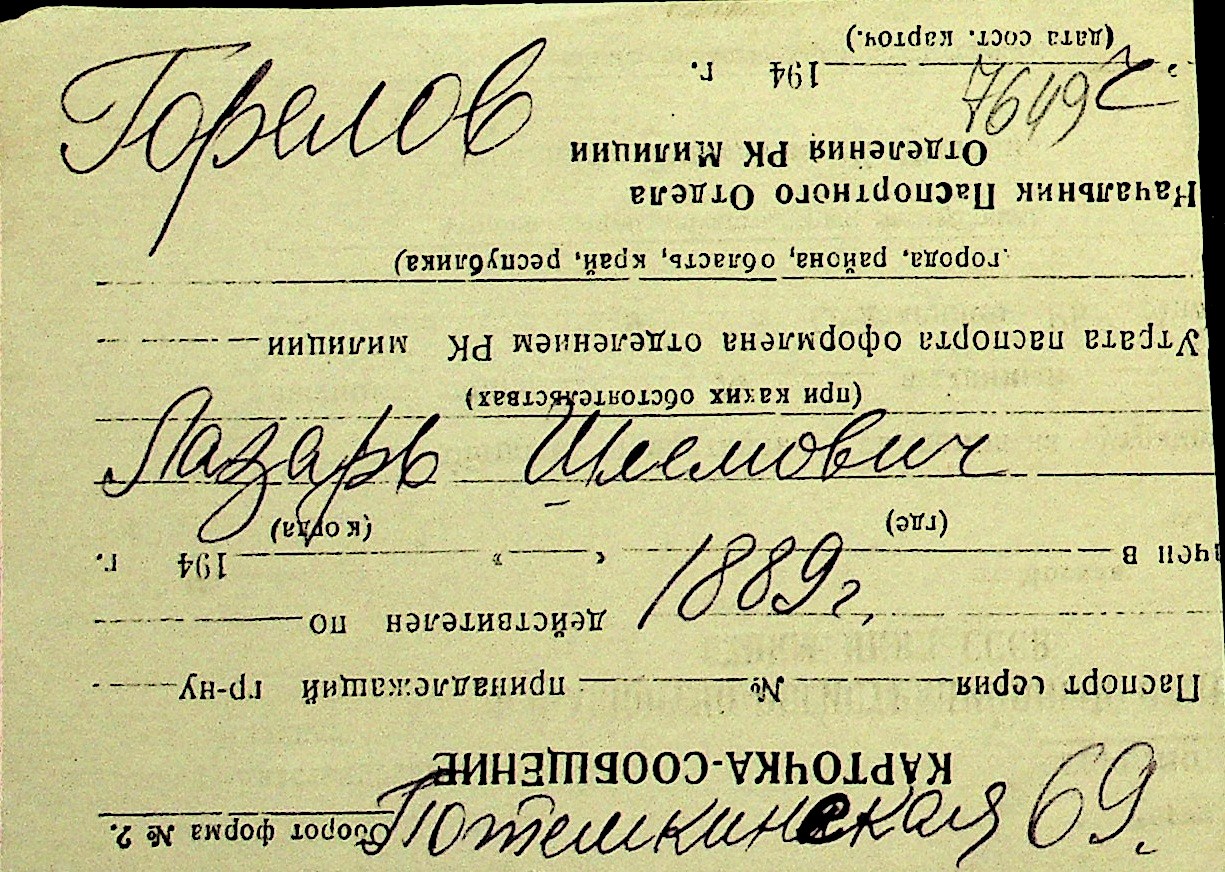 Горелов
7649
Лазарь Шлемович
1889 г.
Потемкинская 69.
Оборот форма № 2.
КАРТОЧКА-СООБЩЕНИЕ
Паспорт серия № принадлежащий гр-ну
действителен по
ачен в « » 194 г.
(где) (когда)
(при каких обстоятельствах)
Утрата паспорта оформлена отделением РК милиции
города, района, область, край, республика)
Начальник Паспортного Отдела
Отделения РК Милиции
" 194 г.
(дата сост. карточ.)